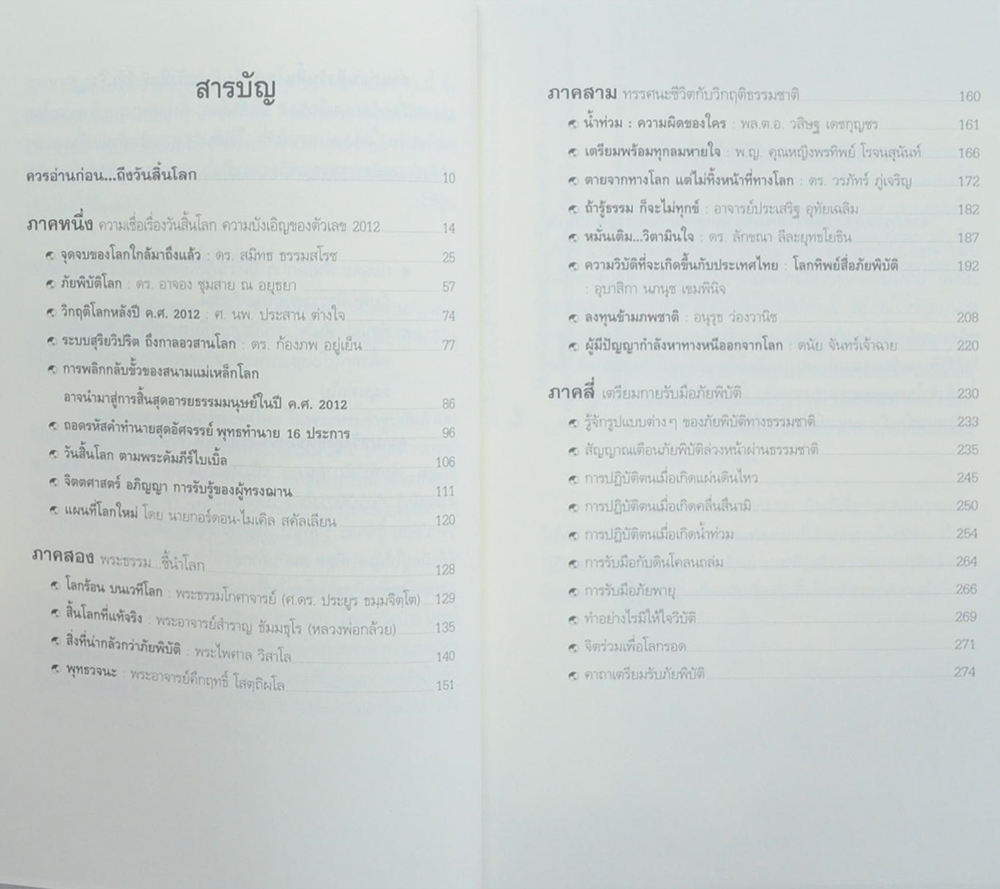 สารบัญ
ควรอ่านก่อน...ถึงวันสิ้นโลก 10
ภาคหนึ่ง ความเชื่อเรื่องวันสิ้นโลก ความบังเอิญของตัวเลข 2012 14
จุดจบของโลกใกล้มาถึงแล้ว : ดร. สมิทธ ธรรมสโรช 25
ภัยพิบัติโลก : ดร. อาจอง ชุมสาย ณ อยุธยา 57
วิกฤติโลกหลังปี ค.ศ. 2012 : ศ. นพ. ประสาน ต่างใจ 74
ระบบสุริยวิปริต ถึงกาลอวสานโลก : ดร. ก้องภพ อยู่เย็น 77
การพลิกกลับขั้วของสนามแม่เหล็กโลก
อาจนำมาสู่การสิ้นสุดอารยธรรมมนุษย์ในปี ค.ศ. 2012 86
ถอดรหัสคำทำนายสุดอัศจรรย์ พุทธทำนาย 16 ประการ 96
วันสิ้นโลก ตามพระคัมภีร์ไบเบิ้ล 106
จิตตศาสตร์ อภิญญา การรับรู้ของผู้ทรงฌาน 111
แผนที่โลกใหม่ โดย นายกอร์ดอน-ไมเคิล สคัลเลียน 120
ภาคสอง พระธรรม...ชี้นำโลก 128
โลกร้อน บนเวทีโลก : พระธรรมโกศาจารย์ (ศ.ดร. ประยูร ธมฺมจิตฺโต) 129
สิ้นโลกที่แท้จริง : พระอาจารย์สำราญ ธัมมธุโร (หลวงพ่อกล้วย) 135
สิ่งที่น่ากลัวกว่าภัยพิบัติ : พระไพศาล วิสาโล 140
พุทธวจนะ : พระอาจารย์คึกฤทธิ์ โสตฺถิผโล 151
ภาคสาม ทรรศนะชีวิตกับวิกฤติธรรมชาติ 160
น้ำท่วม : ความผิดของใคร : พล.ต.อ. วสิษฐ เดชกุญชร 161
เตรียมพร้อมทุกลมหายใจ : พ.ญ. คุณหญิงพรทิพย์ โรจนสุนันท์ 166
ตายจากทางโลก แต่ไม่ทิ้งหน้าที่ทางโลก : ดร. วรภัทร์ ภู่เจริญ 172
ถ้ารู้ธรรม ก็จะไม่ทุกข์ : อาจารย์ประเสริฐ อุทัยเฉลิม 182
หมั่นเติม...วิตามินใจ : ดร. ลักขณา ลีละยุทธโยธิน 187
ความวิบัติที่จะเกิดขึ้นกับประเทศไทย : โลกทิพย์สื่อภัยพิบัติ 192
: อุบาสิกา นภนุช เขมพินิจ
ลงทุนข้ามภพชาติ : อนุรุธ ว่องวานิช 208
ผู้มีปัญญากำลังหาทางหนีออกจากโลก : ดนัย จันทร์เจ้าฉาย 220
ภาคสี่ เตรียมกายรับมือภัยพิบัติ 230
รู้จักรูปแบบต่างๆ ของภัยพิบัติทางธรรมชาติ 233
สัญญาณเตือนภัยพิบัติล่วงหน้าผ่านธรรมชาติ 235
การปฏิบัติตนเมื่อเกิดแผ่นดินไหว 245
การปฏิบัติตนเมื่อเกิดคลื่นสึนามิ 250
การปฏิบัติตนเมื่อเกิดน้ำท่วม 254
การรับมือกับดินโคลนถล่ม 264
การรับมือภัยพายุ 266
ทำอย่างไรมิให้ใจวิบัติ 269
จิตร่วมเพื่อโลกรอด 271
คาถาเตรียมรับภัยพิบัติ 274